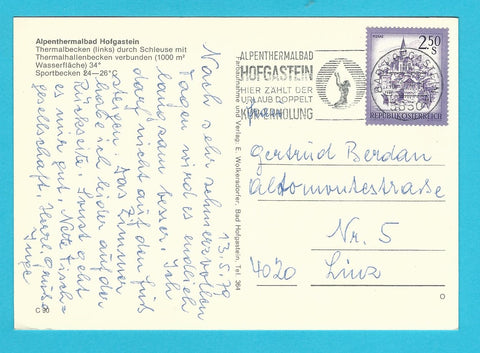 Alpenthermalbad Hofgastein
Thermalbecken (links) durch Schleuse mit
Thermalhallenbecken verbunden (1000 m²
Wasserfläche) 34°
Sportbecken 24—26°C
13.5.79
Nach sehr schmerzvollen
Tagen wird es endlich
langsam besser. Ich
darf nicht auf den Fuß
steigen. Das Zimmer
habe ich leider auf der
Rückseite. Sonst geht
es mir gut. Nette Tisch-
gesellschaft. Herzl. Grüße
Inge
C 90
Farbaufnahme und Verlag: E. Wolkersdorfer, Bad Hofgastein, Tel. 364
ALPENTHERMALBAD
HOFGASTEIN
HIER ZÄHLT DER
URLAUB DOPPELT
KUR+ERHOLUNG
MURAU
2.50
S
REPUBLIK ÖSTERREICH
BAD HOFGASTEIN
5630
Frau
Gertrud Berdan
Altomontestraße
Nr. 5
4020 Linz